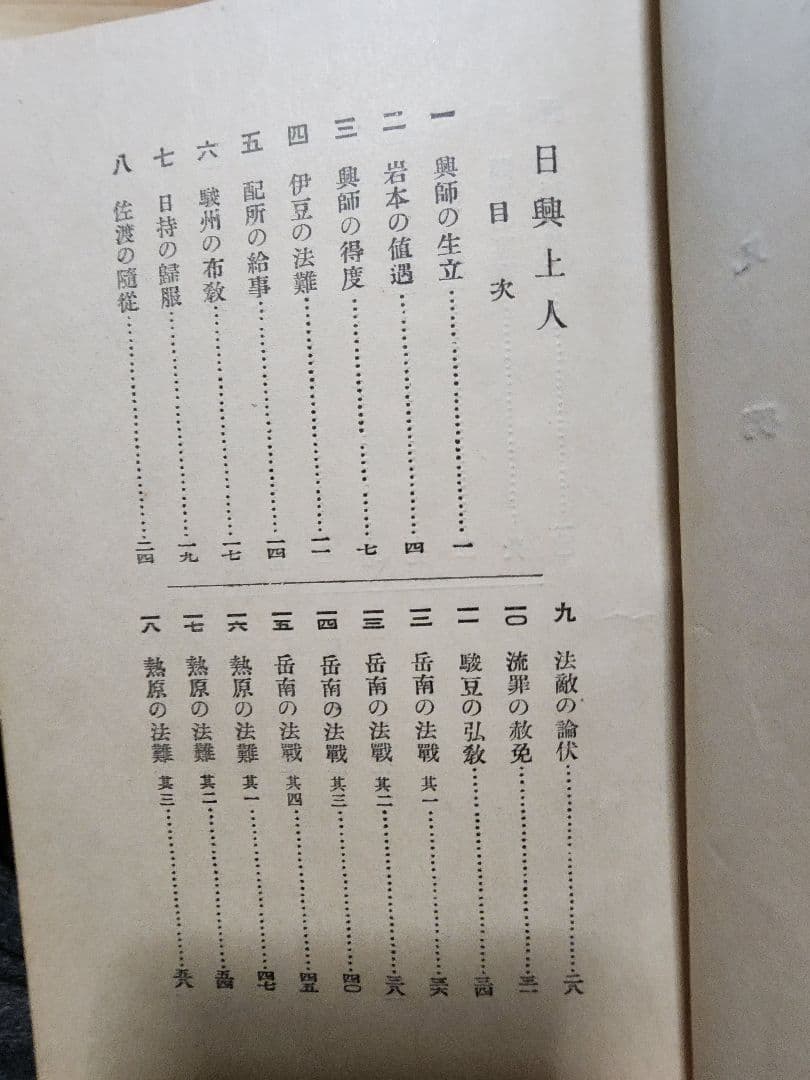 日興上人
目次
一 興師の生立…………一
二 岩本の値遇…………四
三 興師の得度…………七
四 伊豆の法難…………一一
五 配所の給事…………一四
六 駿州の布教…………一七
七 日持の歸服…………一九
八 佐渡の隨從…………二四
九 法敵の論伏…………二八
一〇 流罪の赦免…………三一
一一 駿豆の弘教…………三四
一二 岳南の法戰 其一…………三六
一三 岳南の法戰 其二…………三八
一四 岳南の法戰 其三…………四〇
一五 岳南の法戰 其四…………四五
一六 熱原の法難 其一…………四七
一七 熱原の法難 其二…………五四
一八 熱原の法難 其三…………五八